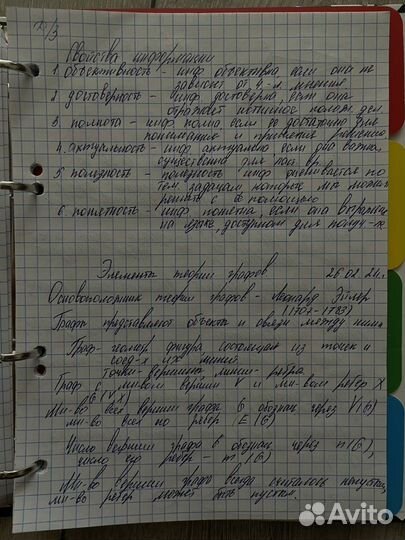 Д/З
Свойства информации
1. объективность - инф. объективна если она не
зависит от ч-л. мнения
2. достоверность - инф. достоверна, если она
отражает истинное полож. дел
3. полнота - инф. полна если её достаточно для
понимания и принятия решения
4. актуальность - инф. актуальна если она важна,
существенна для наст. вр.
5. полезность - полезность инф. оценивается по
тем задачам которые мы можем
решить с её помощью
6. понятность - инф. понятна, если она выражена
на языке, доступном для получ-я.
Элементы теории графов 26.02.21г.
Основоположник теории графов - Леонард Эйлер
(1707-1783)
Графы представляют объекты и связи между ними
Граф - геометр. фигура, состоящая из точек и
соед-х их линий.
точки - вершины, линии - ребра.
Граф с мн-вом вершин V и мн-вом ребер X
G(V,X)
Мн-во всех вершин графа G обознач. через V(G)
мн-во всех его ребер E(G)
Число вершин графа G обознач. через n(G),
число его ребер - m(G)
Мн-во вершин графа всегда считалось непустым,
мн-во ребер может быть пустым.
Avito